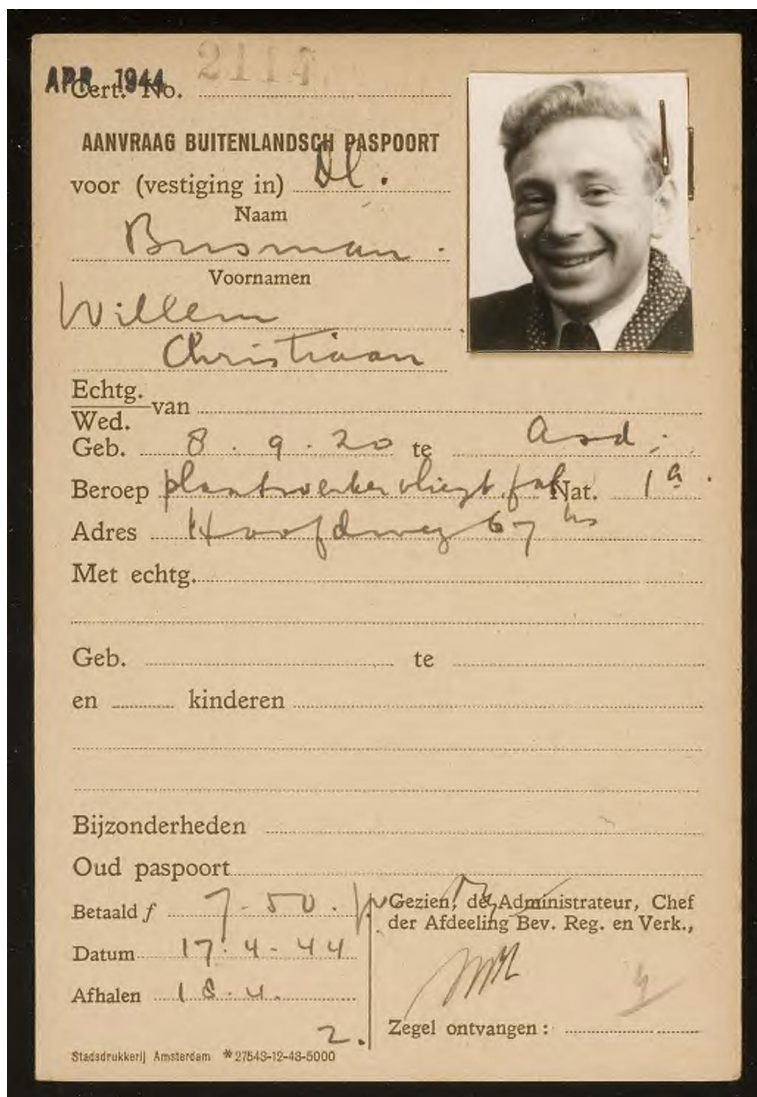 APR. 1944 2117
Cert. No.
AANVRAAG BUITENLANDSCH PASPOORT
voor (vestiging in) Dl.
Naam
Busman.
Voornamen
Willem
Christiaan
Echtg.
Wed. van
Geb. 8.9.20 te Asd.
Beroep plaatwerker vliegt. fab Nat. 1a.
Adres Hoofdweg 67 hs
Met echtg.
Geb. te
en kinderen
Bijzonderheden
Oud paspoort
Betaald f 7-50.
Gezien, de Administrateur, Chef
der Afdeeling Bev. Reg. en Verk.,
Datum 17.4-44
Afhalen 18.4.
2.
Zegel ontvangen :
Stadsdrukkerij Amsterdam *27543-12-43-5000